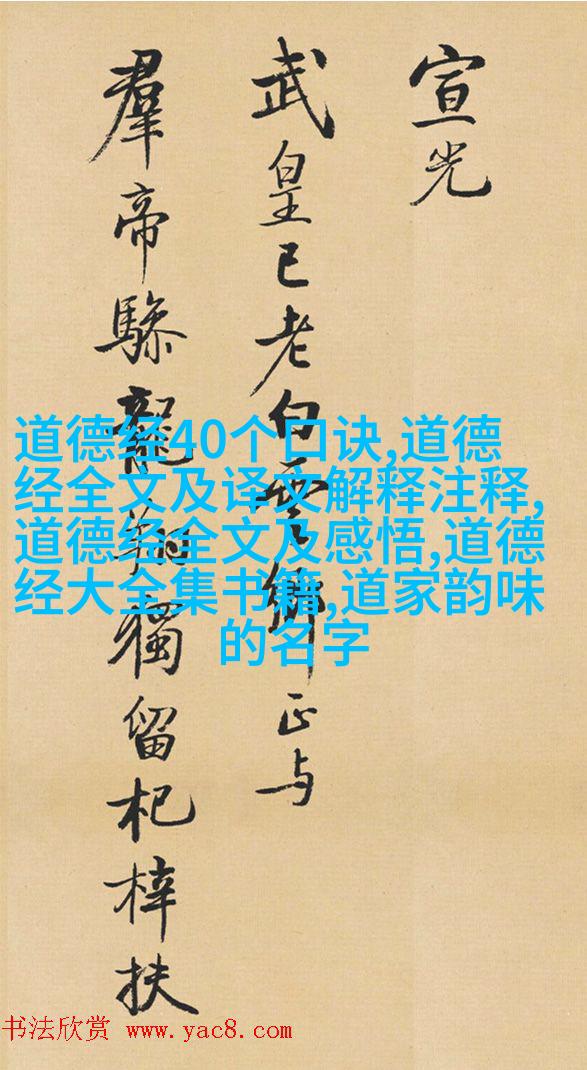 宣光
武皇已老白雲鄉正与
羣帝驂龍翔獨留杞梓扶
道德经40个口诀,道德
经全文及译文解释注释,
道德经全文及感悟,道德
经大全集书籍,道家韵味
的名字
书法欣赏 www.yac8.com